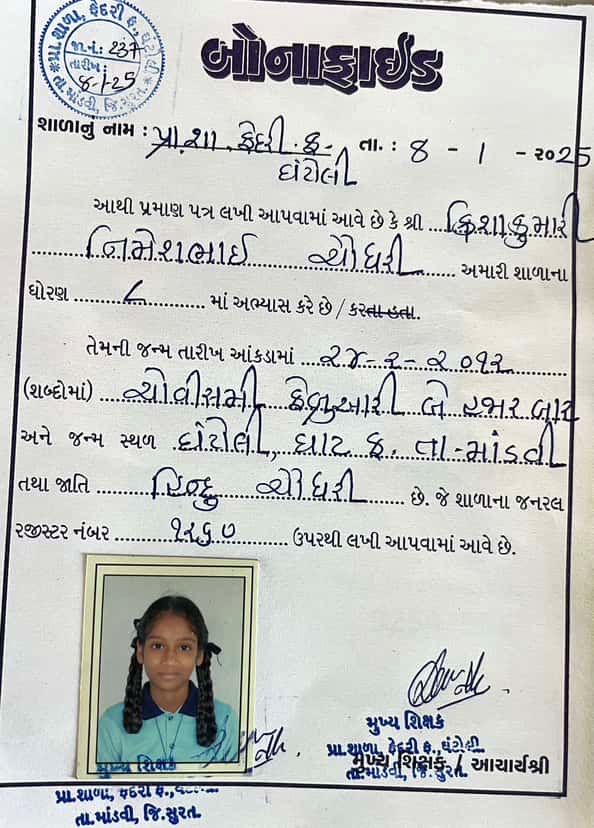 પ્રા.શાળા, ફેદરી ફ., ઘંટોલી
જા.નં.: 237
તારીખ:
8-1-25
તા.માંડવી, જિ.સુરત.
બોનાફાઈડ
શાળાનું નામ : પ્રા.શા. ફેદરી ફ. તા. : 8 - 1 - ૨૦25
ઘંટોલી
આથી પ્રમાણ પત્ર લખી આપવામાં આવે છે કે શ્રી ક્રિશાકુમારી
નિમેશભાઈ ચૌધરી અમારી શાળાના
ધોરણ ૮ માં અભ્યાસ કરે છે / કરતા હતા.
તેમની જન્મ તારીખ આંકડામાં ૨૪-૨-૨૦૧૨
(શબ્દોમાં) ચોવીસમી ફેબ્રુઆરી બે હજાર બાર
અને જન્મ સ્થળ ઘંટોલી, ઘાટ ફ. તા-માંડવી
તથા જાતિ હિન્દુ ચૌધરી છે. જે શાળાના જનરલ
રજીસ્ટર નંબર ૧૨૬૦ ઉપરથી લખી આપવામાં આવે છે.
મુખ્ય શિક્ષક
પ્રા.શાળા, ફેદરી ફ., ઘંટોલી
મુખ્ય શિક્ષક / આચાર્યશ્રી
તા.માંડવી, જિ.સુરત.
મુખ્ય શિક્ષક
પ્રા.શાળા, ફેદરી ફ.,
તા.માંડવી, જિ.સુરત.